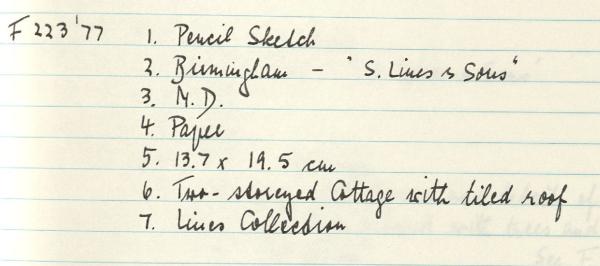 F 223'77 1. Pencil Sketch
2. Birmingham - "S. Lines & Sons"
3. N.D.
4. Paper
5. 13.7 x 19.5 cm
6. Two-storeyed Cottage with tiled roof
7. Lines Collection